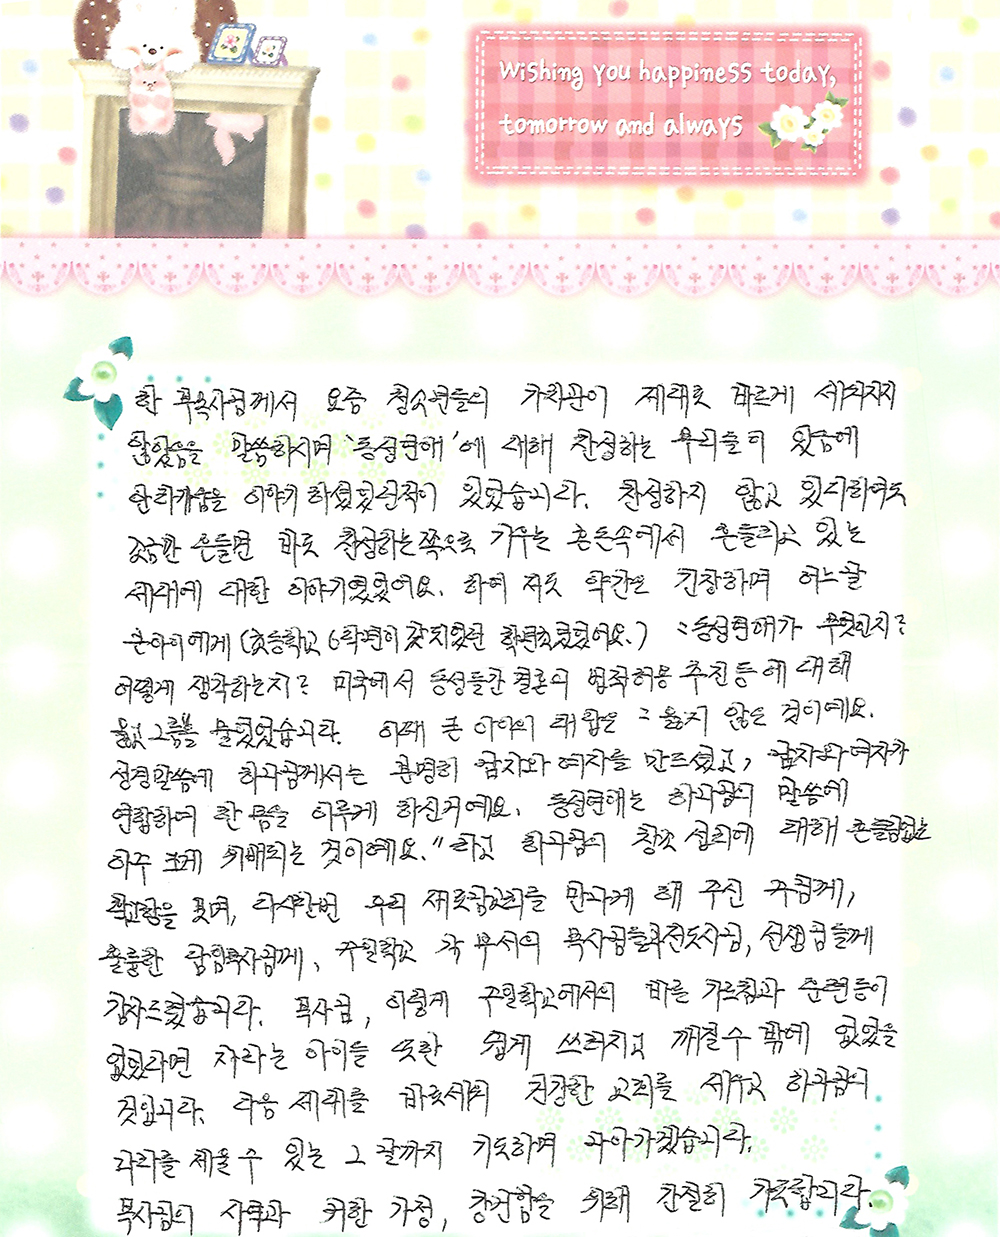 Wishing you happiness today,
tomorrow and always
한 부목사님께서 요즘 청소년들의 가치관이 제대로 바르게 세워지지
않았음을 말씀하시며 '동성연애'에 대해 찬성하는 무리들이 있음에
안타까움을 이야기 하셨었던적이 있었습니다. 찬성하지 않고 있다하여도
조금만 흔들면 바로 찬성하는쪽으로 기우는 혼돈속에서 흔들리고 있는
세대에 대한 이야기였었어요. 하여 저도 약간은 긴장하며 어느날
큰아이에게 (초등학교 6학년이 갓되었던 학년초였었어요.) "동성연애가 무엇인지?
어떻게 생각하는지? 미국에서 동성들간 결혼의 법적허용 추진 등에 대해
옳고 그름을 물었었습니다. 이때 큰 아이의 대답은 "옳지 않은 것이에요.
성경말씀에 하나님께서는 분명히 남자와 여자를 만드셨고, 남자와 여자가
연합하여 한 몸을 이루게 하신거예요. 동성연애는 하나님의 말씀에
아주 크게 위배되는 것이에요." 라고 하나님의 창조 섭리에 대해 흔들림없는
확고함을 보며, 다시한번 우리 새로남교회를 만나게 해 주신 주님께,
훌륭한 담임목사님께, 주일학교 각 부서의 목사님들과전도사님, 선생님들께
감사드렸습니다. 목사님, 이렇게 주일학교에서의 바른 가르침과 훈련등이
없었다면 자라는 아이들 또한 쉽게 쓰러지고 깨질수 밖에 없었을
것입니다. 다음 세대를 바로세워 건강한 교회를 세우고 하나님의
나라를 세울 수 있는 그 날까지 기도하며 나아가겠습니다.
목사님의 사역과 귀한 가정, 강건함을 위해 간절히 기도합니다.